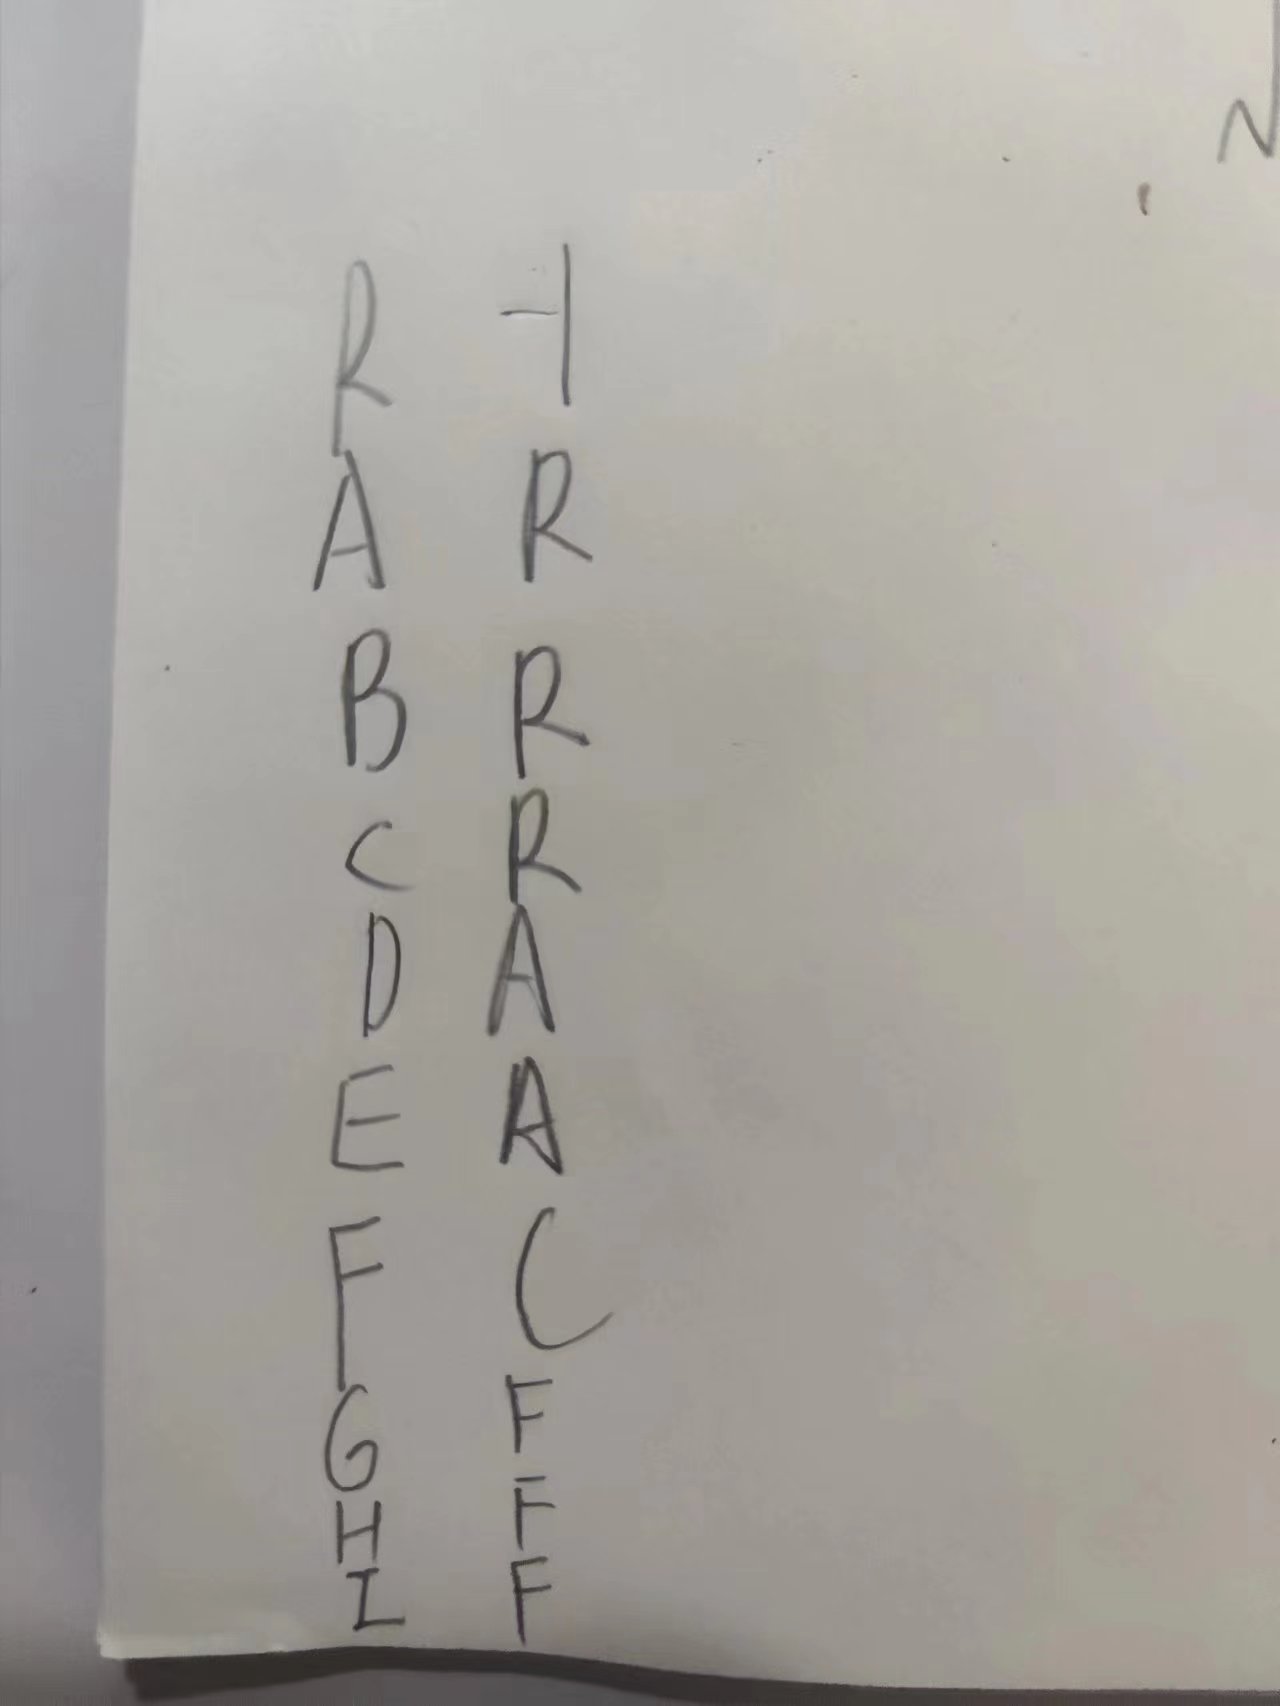 R -1
A R
B R
C R
D A
E A
F C
G F
H F
I F